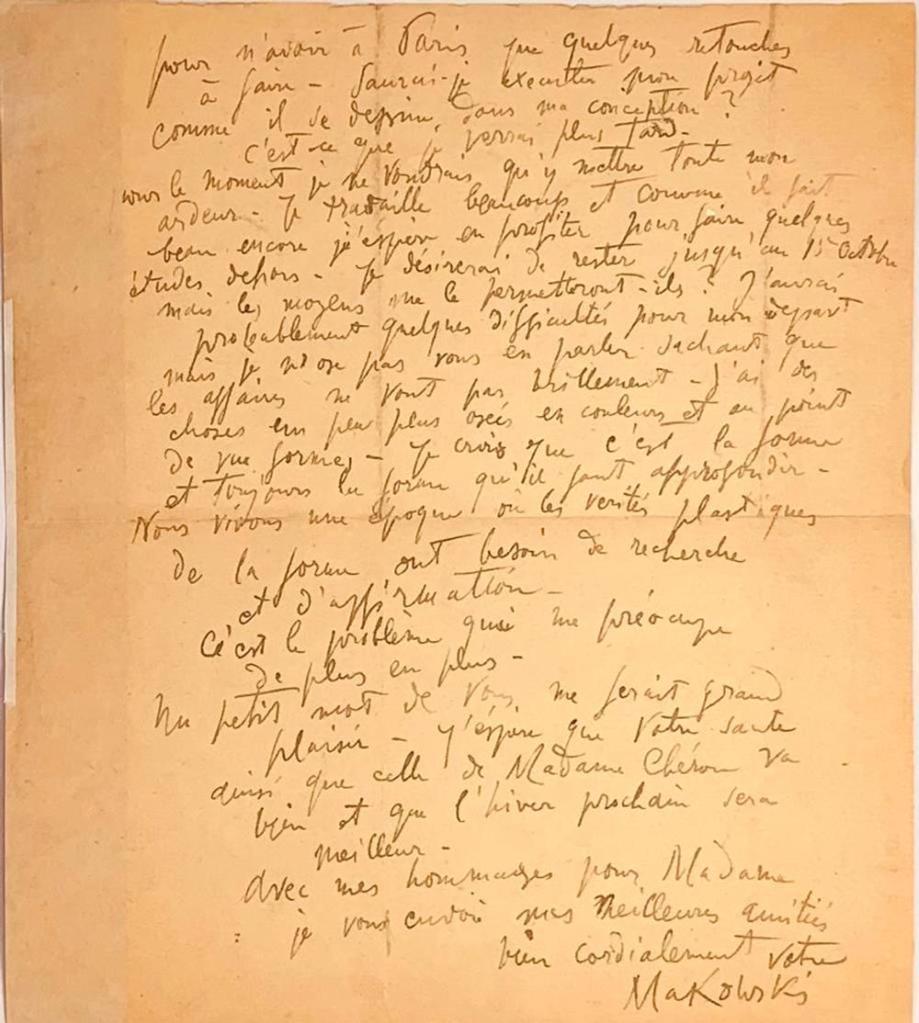 pour n'avoir à Paris que quelques retouches
à faire - Saurais-je executer mon projet
comme il se dessine dans ma conception ?
C'est ce que je verrai plus tard -
pour le moment je ne voudrais qu'y mettre toute mon
ardeur - Je travaille beaucoup et comme il fait
beau encore j'espère en profiter pour faire quelques
études dehors - Je désirerai de rester jusqu'au 15 Octobre
mais les moyens me le permetteront-ils ? J'aurai
probablement quelques difficultés pour mon départ
mais je n'ose pas vous en parler sachant que
les affaires ne vont pas brillement - J'ai des
choses un peu plus osées en couleurs et au point
de vue formes - Je crois que c'est la forme
et toujours la forme qu'il faut approfondir -
Nous vivons une époque où les verités plastiques
de la forme ont besoin de recherche
et d'affirmation -
C'est le problème qui me préocupe
de plus en plus -
Un petit mot de vous me ferait grand
plaisir - J'éspère que Votre santé
ainsi que celle de Madame Chéron va
bien et que l'hiver prochain sera
meilleur -
Avec mes hommages pour Madame
je vous envoie mes meilleures amitiés
bien cordialement votre
Makowski